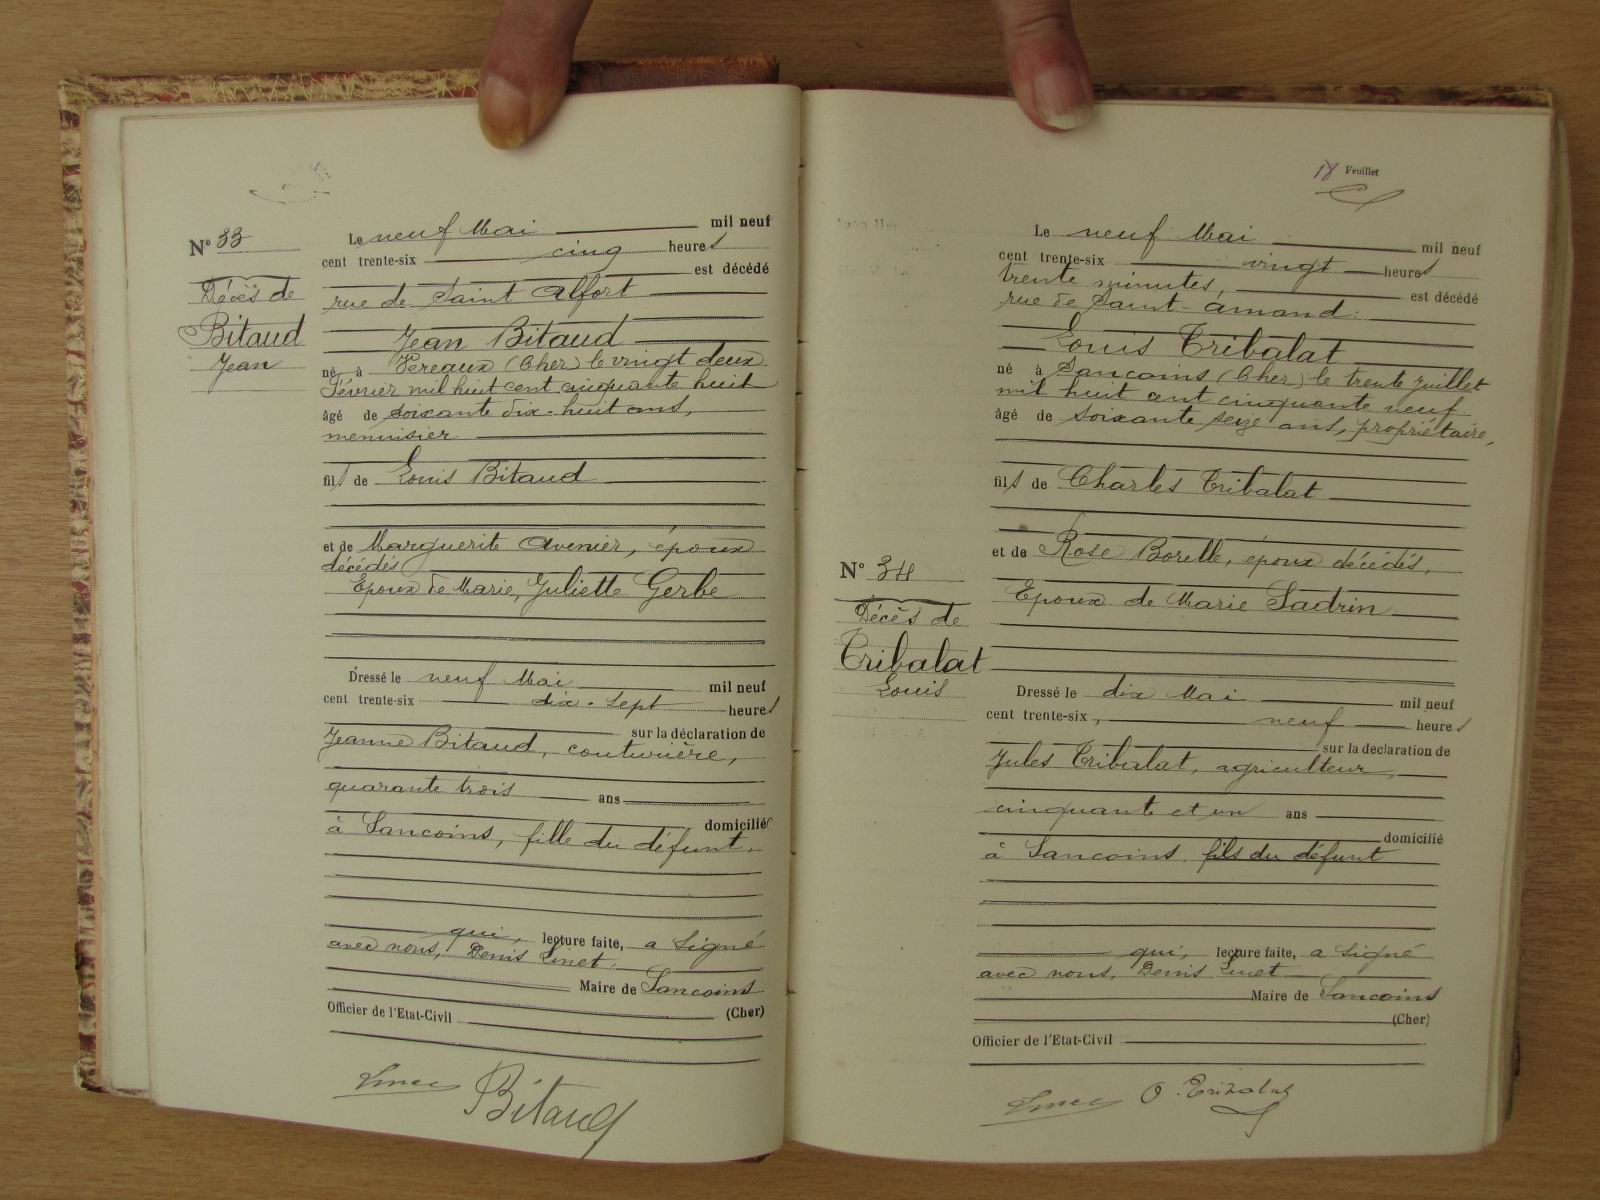 N° 33
Décès de
Bitaud
Jean
Le neuf Mai mil neuf
cent trente-six cinq heures
est décédé
rue de Saint Alfort
Jean Bitaud
né à Vereaux (Cher) le vingt deux
Février mil huit cent cinquante huit
âgé de soixante dix-huit ans,
menuisier
fils de Louis Bitaud
et de Marguerite Avenier, époux
décédés
Epoux de Marie, Juliette Gerbe
Dressé le neuf Mai mil neuf
cent trente-six dix-sept heures
sur la déclaration de
Jeanne Bitaud, couturière,
quarante trois ans
domiciliée
à Sancoins, fille du défunt.
qui, lecture faite, a signé
avec nous, Denis Linet.
Maire de Sancoins
(Cher)
Officier de l'Etat-Civil
Bitaud
18 Feuillet
Le neuf Mai mil neuf
cent trente-six vingt heures
trente minutes, est décédé
rue de Saint-Amand.
Louis Tribalat
né à Sancoins (Cher) le trente juillet
mil huit cent cinquante neuf
âgé de soixante seize ans, propriétaire,
fils de Charles Tribalat
et de Rose Borelle, époux décédés.
Epoux de Marie Sadrin
N° 34
Décès de
Tribalat
Louis
Dressé le dix Mai mil neuf
cent trente-six, neuf heures
sur la déclaration de
Jules Tribalat, agriculteur,
cinquante et un ans
domicilié
à Sancoins, fils du défunt
qui, lecture faite, a signé
avec nous, Denis Linet
Maire de Sancoins
(Cher)
Officier de l'Etat-Civil